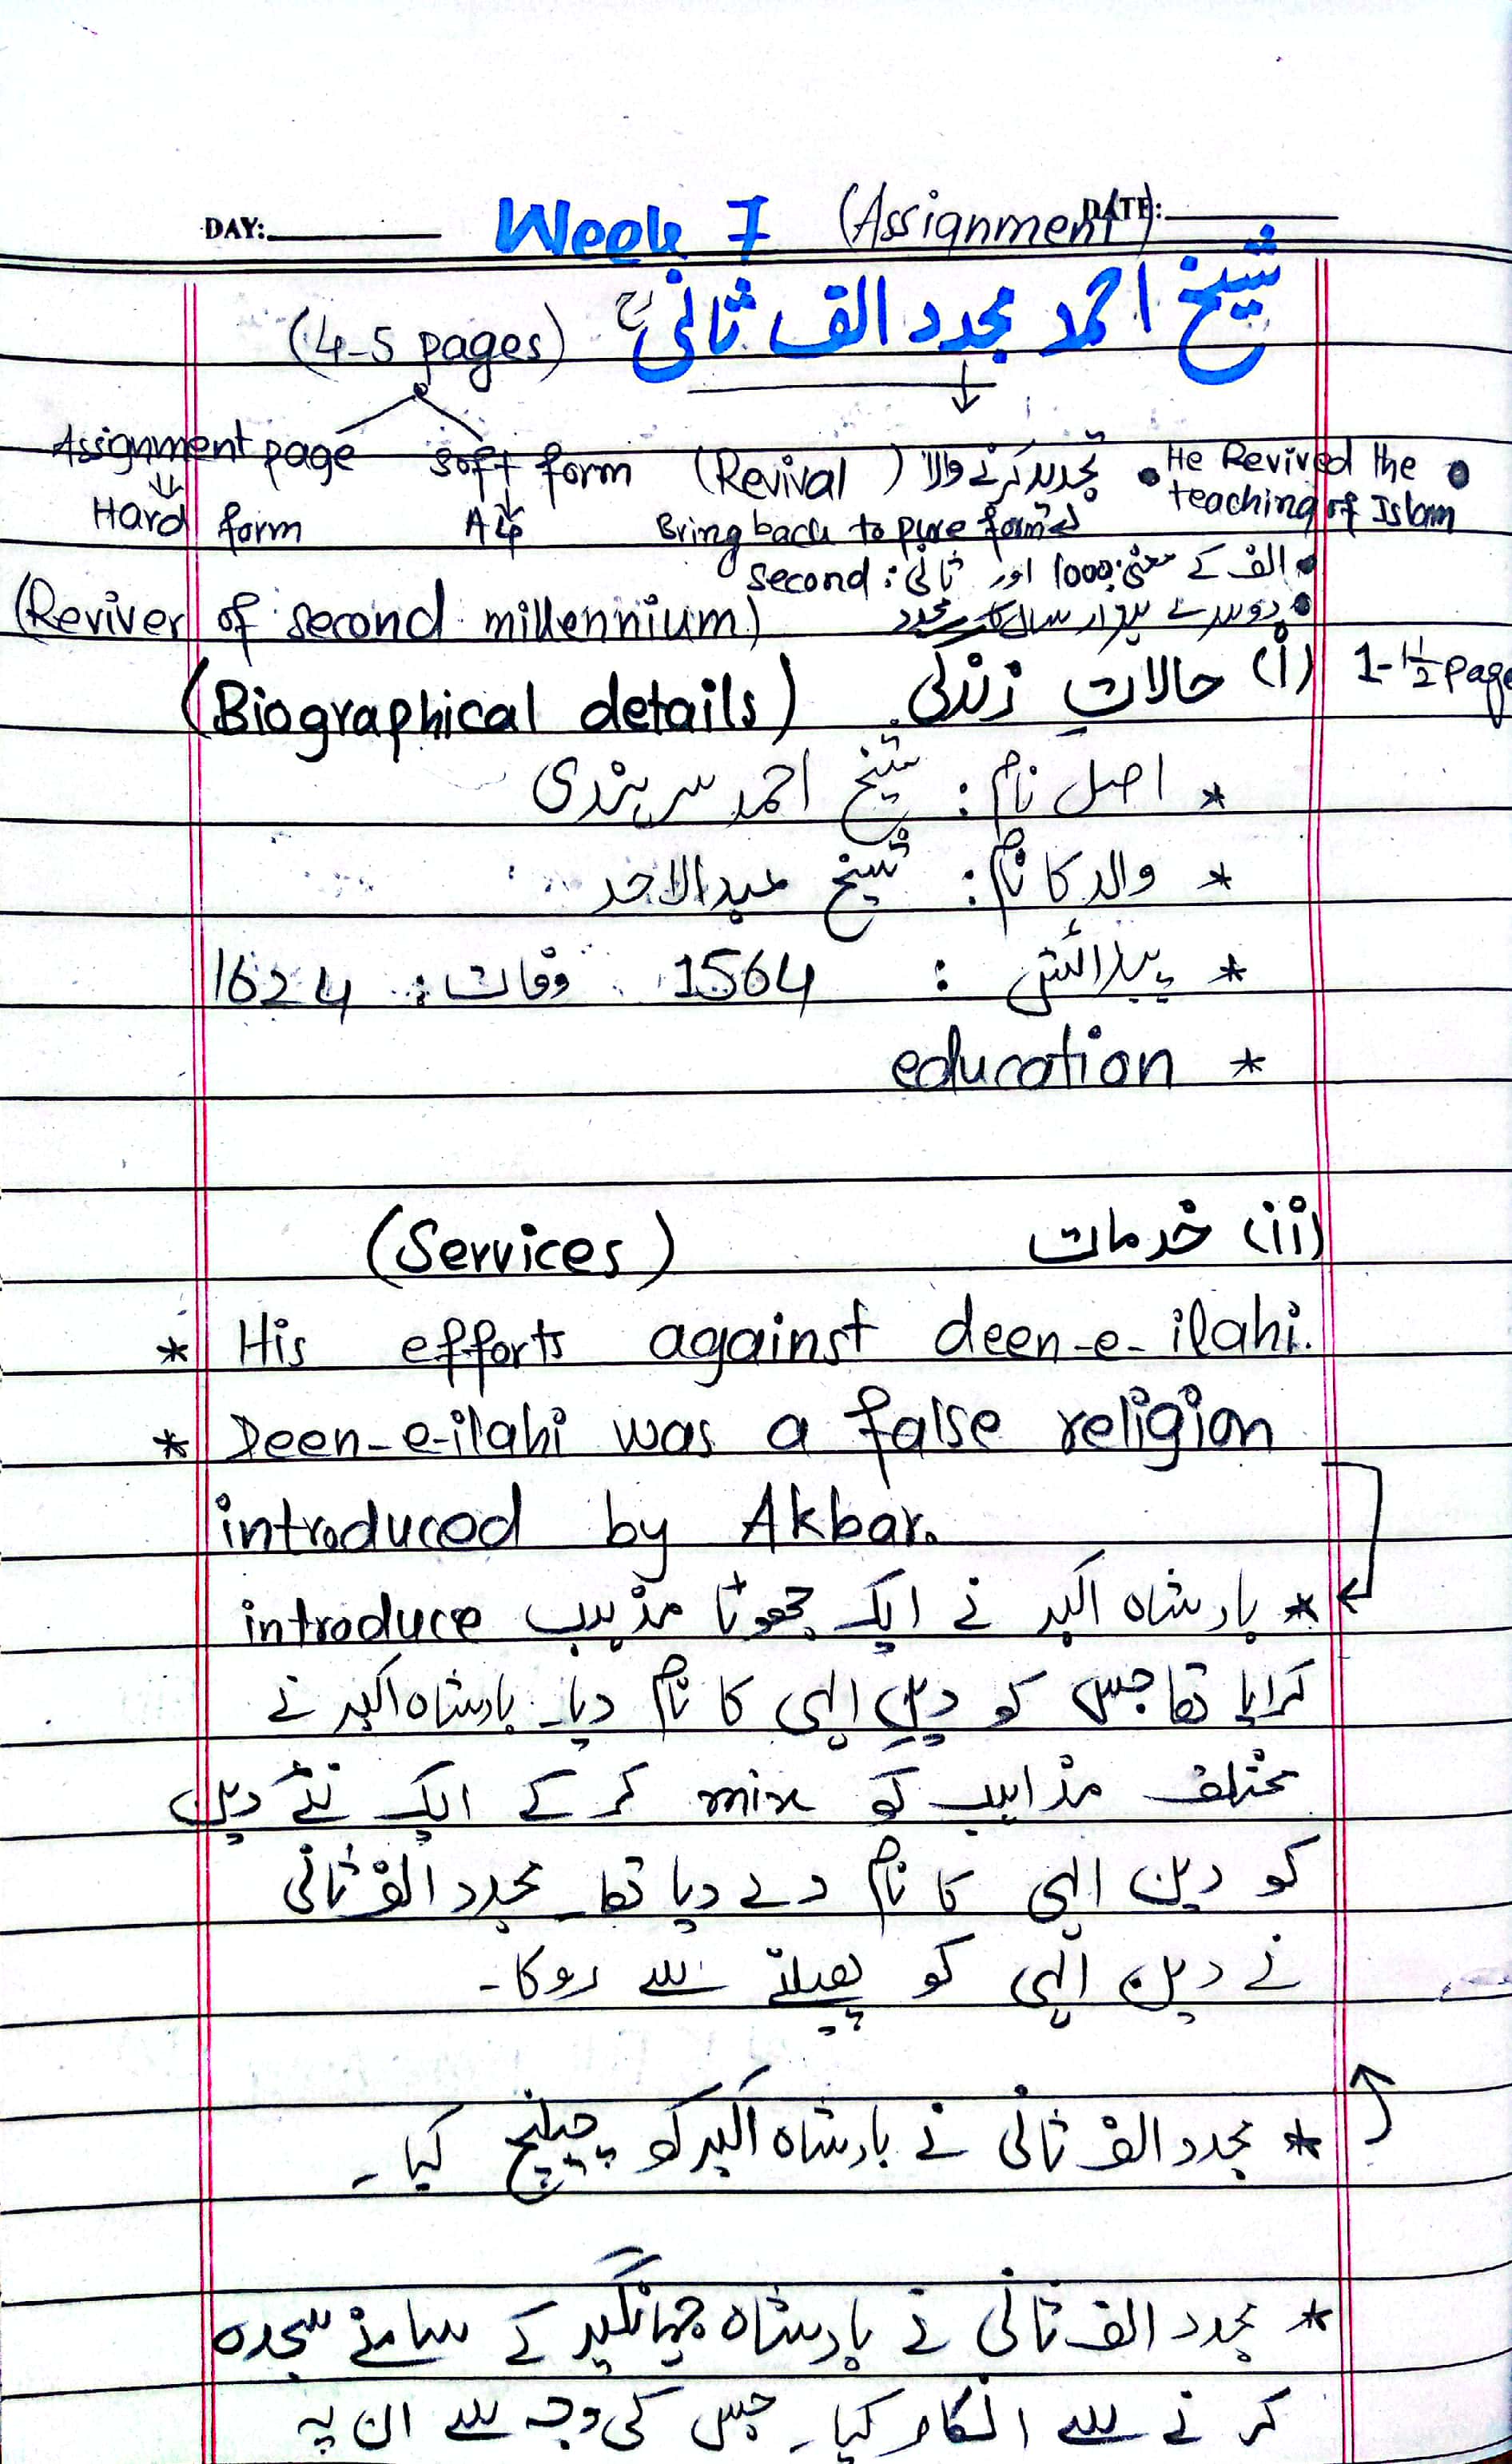 DAY: Week 7 (Assignment) DATE:
شیخ احمد مجدد الف ثانیؒ (4-5 pages)
Assignment page soft form (Revival) تجدید کرنے والا • He Revived the
teaching of Islam
Hard form A4 Bring back to pure form
• الف کے معنی: 1000 اور ثانی: second
• دوسرے ہزار سال کا مجدد (Reviver of second millennium)
(i) حالاتِ زندگی (Biographical details) 1-1½ page
* اصل نام: شیخ احمد سرہندی
* والد کا نام: شیخ عبدالاحد
* پیدائش: 1564 وفات: 1624
* education
(ii) خدمات (Services)
* His efforts against deen-e-ilahi.
* Deen-e-ilahi was a false religion
introduced by Akbar.
* بادشاہ اکبر نے ایک جھوٹا مذہب introduce
کرایا تھا جس کو دینِ الہی کا نام دیا۔ بادشاہ اکبر نے
مختلف مذاہب کو mix کر کے ایک نئے دین
کو دین الہی کا نام دے دیا تھا۔ مجدد الف ثانی
نے دین الہی کو پھیلنے سے روکا۔
* مجدد الف ثانی نے بادشاہ اکبر کو چیلنج کیا۔
* مجدد الف ثانی نے بادشاہ جہانگیر کے سامنے سجدہ
کرنے سے انکار کیا۔ جس کی وجہ سے ان پہ